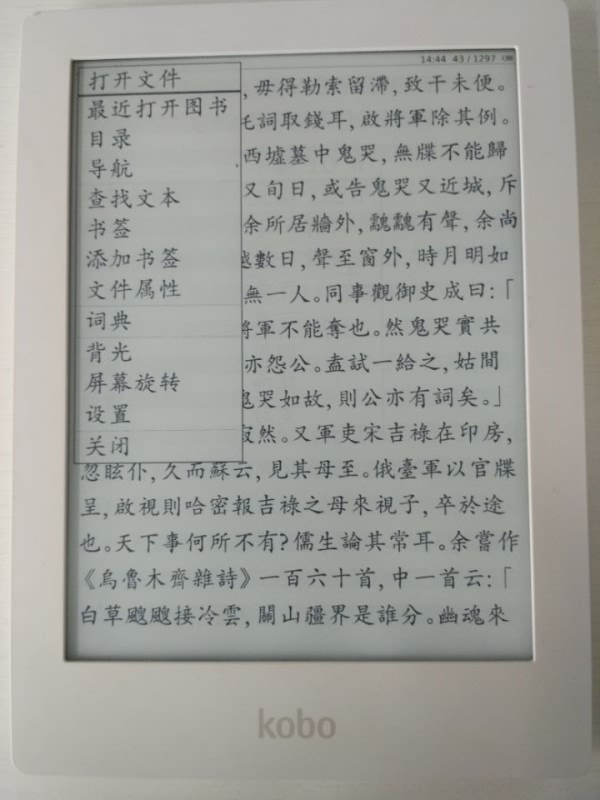 14:44 43 / 1297
打开文件
最近打开图书
目录
导航
查找文本
书签
添加书签
文件属性
词典
背光
屏幕旋转
设置
关闭
,毋得勒索留滯,致干未便。
詞取錢耳,啟將軍除其例。
西墟墓中鬼哭,無牒不能歸
又旬日,或告鬼哭又近城,斥
余所居牆外,颻颻有聲,余尚
數日,聲至窗外,時月明如
無一人。同事觀御史成曰:「
將軍不能奪也。然鬼哭實共
亦怨公。盍試一給之,姑間
鬼哭如故,則公亦有詞矣。」
寂然。又軍吏宋吉祿在印房,
忽眩仆,久而蘇云,見其母至。俄臺軍以官牒
呈,啟視則哈密報吉祿之母來視子,卒於途
也。天下事何所不有?儒生論其常耳。余嘗作
《烏魯木齊雜詩》一百六十首,中一首云:「
白草颼颼接冷雲,關山疆界是誰分。幽魂來
kobo